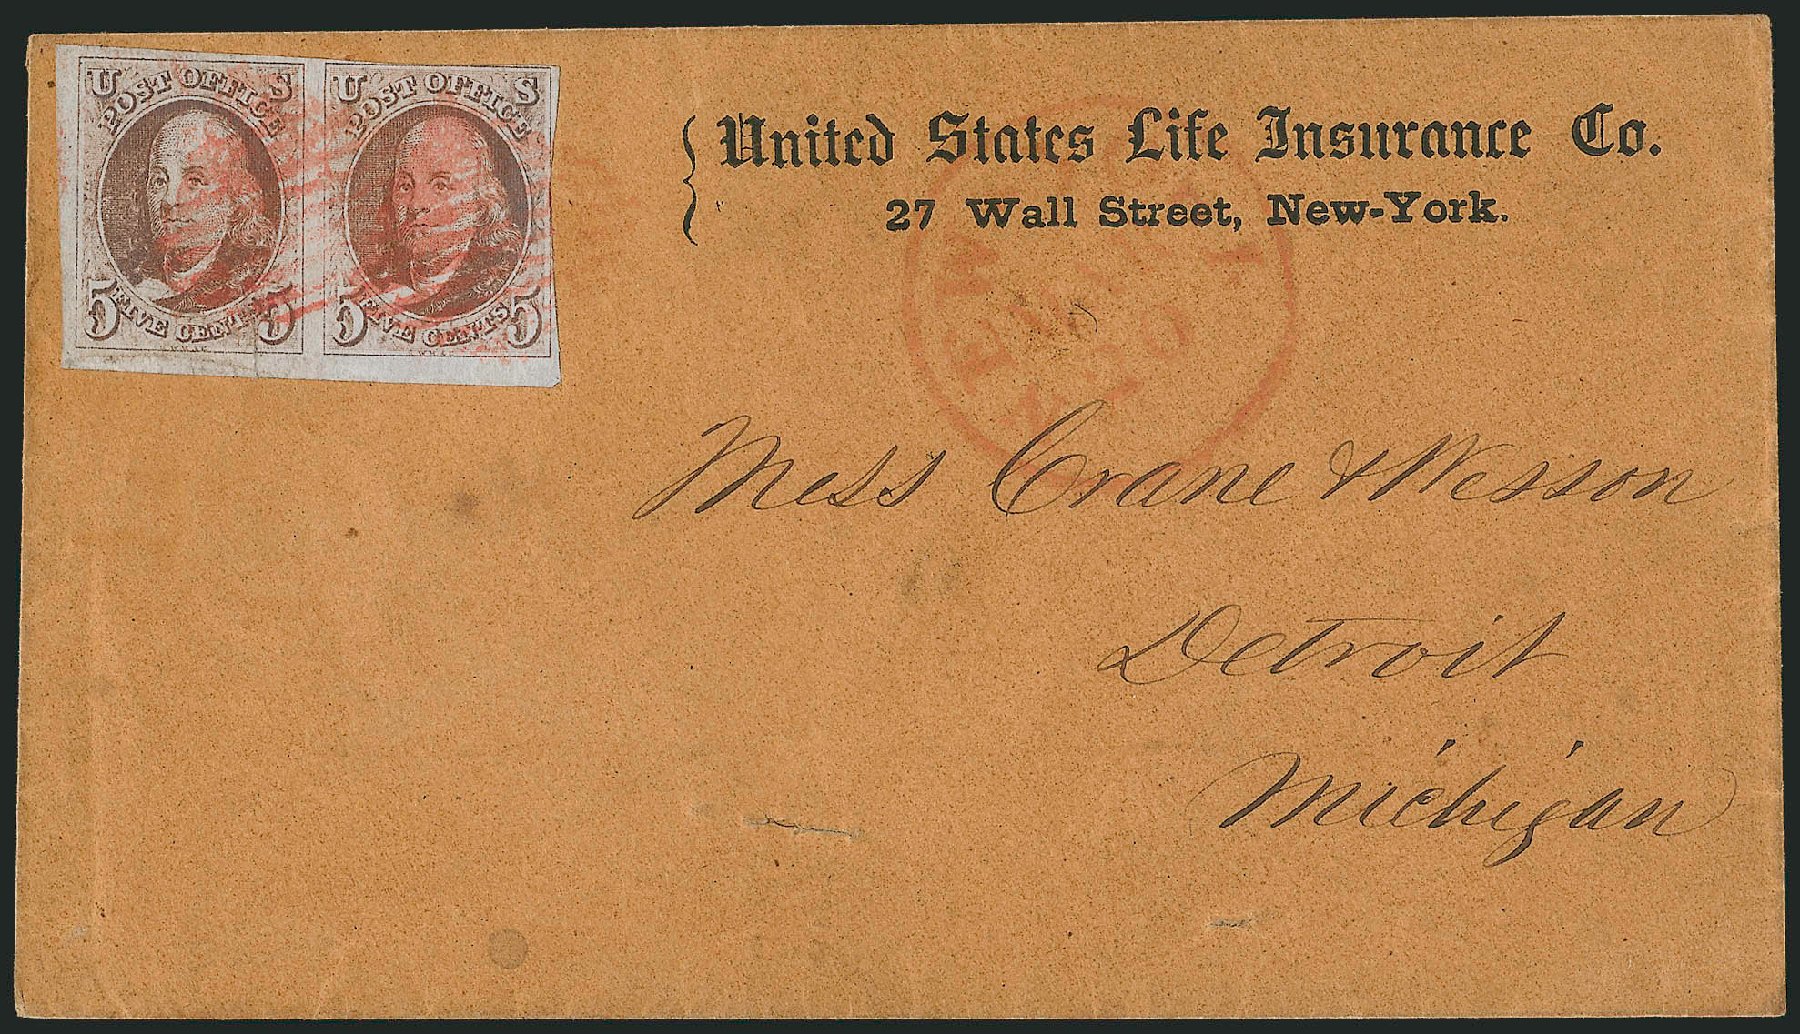 U S U S
POST OFFICE POST OFFICE
5 5 5 5
FIVE CENTS FIVE CENTS
United States Life Insurance Co.
27 Wall Street, New-York.
NEW YORK
Mess Crane & Wesson
Detroit
Michigan